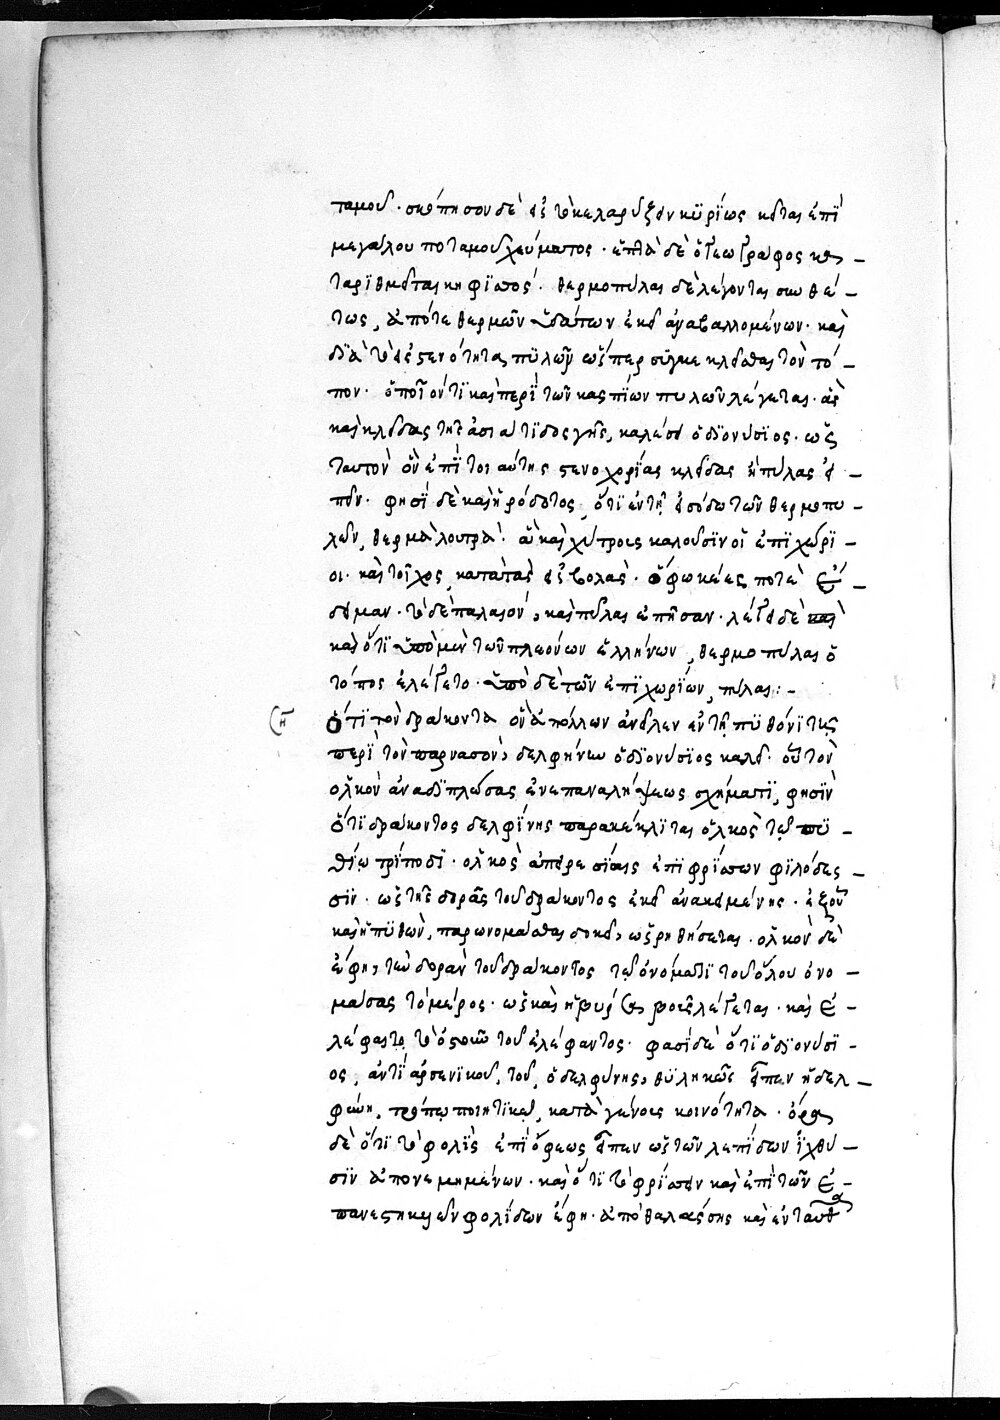 ταμοῦ· σκόπησον δὲ εἰ τὸ κελαρύζειν κυρίως κεῖται ἐπὶ
μεγάλου ποταμοῦ χεύματος· εἶτα δὲ ὁ γεωγράφος κα-
ταριθμεῖται κηφισσός· θερμοπύλαι δὲ λέγονται συνθέ-
τως, ἀπό τε θερμῶν ὑδάτων ἐκεῖ ἀναβαλλομένων· καὶ
διὰ τὸ εἰς στενότητα πυλῶν ὥσπερ συγκεκλεῖσθαι τὸν τό-
πον· ὁποῖον τι καὶ περὶ τῶν κασπίων πυλῶν λέγεται· ἃς
καὶ κλεῖδας τῆς ἀσιάτιδος γῆς, καλέσει ὁ διονύσιος· ὡς
ταυτὸν ὂν ἐπί τοιαύτης στενοχωρίας κλεῖδας ἢ πύλας εἰ-
πεῖν· φησὶ δὲ καὶ ἡρόδοτος, ὅτι ἐν τῇ εἰσόδω τῶν θερμοπυ-
λῶν, θερμὰ λουτρά· ἃ καὶ χύτρους καλοῦσιν οἱ ἐπιχώρι-
οι· καὶ τεῖχος, κατὰ τὰς εἰσβολάς· ὃ φωκέες ποτὲ ἔ-
δειμαν· τὸ δὲ παλαιόν, καὶ πύλαι ἐπῆσαν· λέγει δὲ
καὶ ὅτι ὑπὸ μὲν τῶν πλεόνων ἑλλήνων, θερμοπύλαι ὁ
τόπος ἐλέγετο· ὑπὸ δὲ τῶν ἐπιχωρίων, πύλαι:-
Ὅτι τὸν δράκοντα ὃν ἀπόλλων ἀνεῖλεν ἐν τῇ πυθόνι τῆς
περὶ τὸν παρνασόν, δελφήνην ὁ διονύσιος καλεῖ· οὗ τὸν
ὁλκὸν ἀναδιπλώσας ἐν ἐπαναλήψεως σχήματι, φησὶν
ὅτι δράκοντος δελφίνης παρακέκλιται ὁλκὸς τῷ πυ-
θίῳ τρίποδι· ὁλκὸς ἀπειρεσίαις ἐπιφρίσσων φιλίδες-
σιν· ὡς τῆς δορᾶς τοῦ δράκοντος ἐκεῖ ἀνακειμένης· ἐξ οὗ
καὶ ἡ πυθὼν, παρωνομάσθαι δοκεῖ, ὡς ῥηθήσεται· ὁλκὸν δὲ
ἔφη, τὴν δορὰν τοῦ δράκοντος τῷ ὀνόματι τοῦ ὅλου ὀνο-
μάσας τὸ μέρος· ὡς καὶ ἡ βύρσα βοῦς λέγεται· καὶ ἐ-
λέφας τὸ ὀστοῦν τοῦ ἐλέφαντος· φασὶ δὲ ὅτι ὁ διονύσι-
ος, ἀντὶ ἀρσενικοῦ, τοῦ, ὁ δελφύνης, θυληκῶς εἶπεν ἡ δελ-
φύνη, τρόπῳ ποιητικῷ, κατὰ γένους κοινότητα· ὅρα
δὲ ὅτι τὸ φολὶς ἐπὶ ὄφεως εἶπεν ὡς τῶν λεπίδων ἰχθύ-
σιν ἀπονεμημένων· καὶ ὅτι τὸ φρίσσειν καὶ ἐπὶ τῶν ἐ-
πανεστηκυιῶν φολίδων ἔφη· ἀπὸ θαλάσσης καὶ ἐνταῦθα